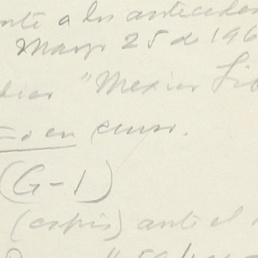 nte a los anteceden
Mayo 25 de 196
"Mexico Li
en curso.
(G-1)
(copia) ante el